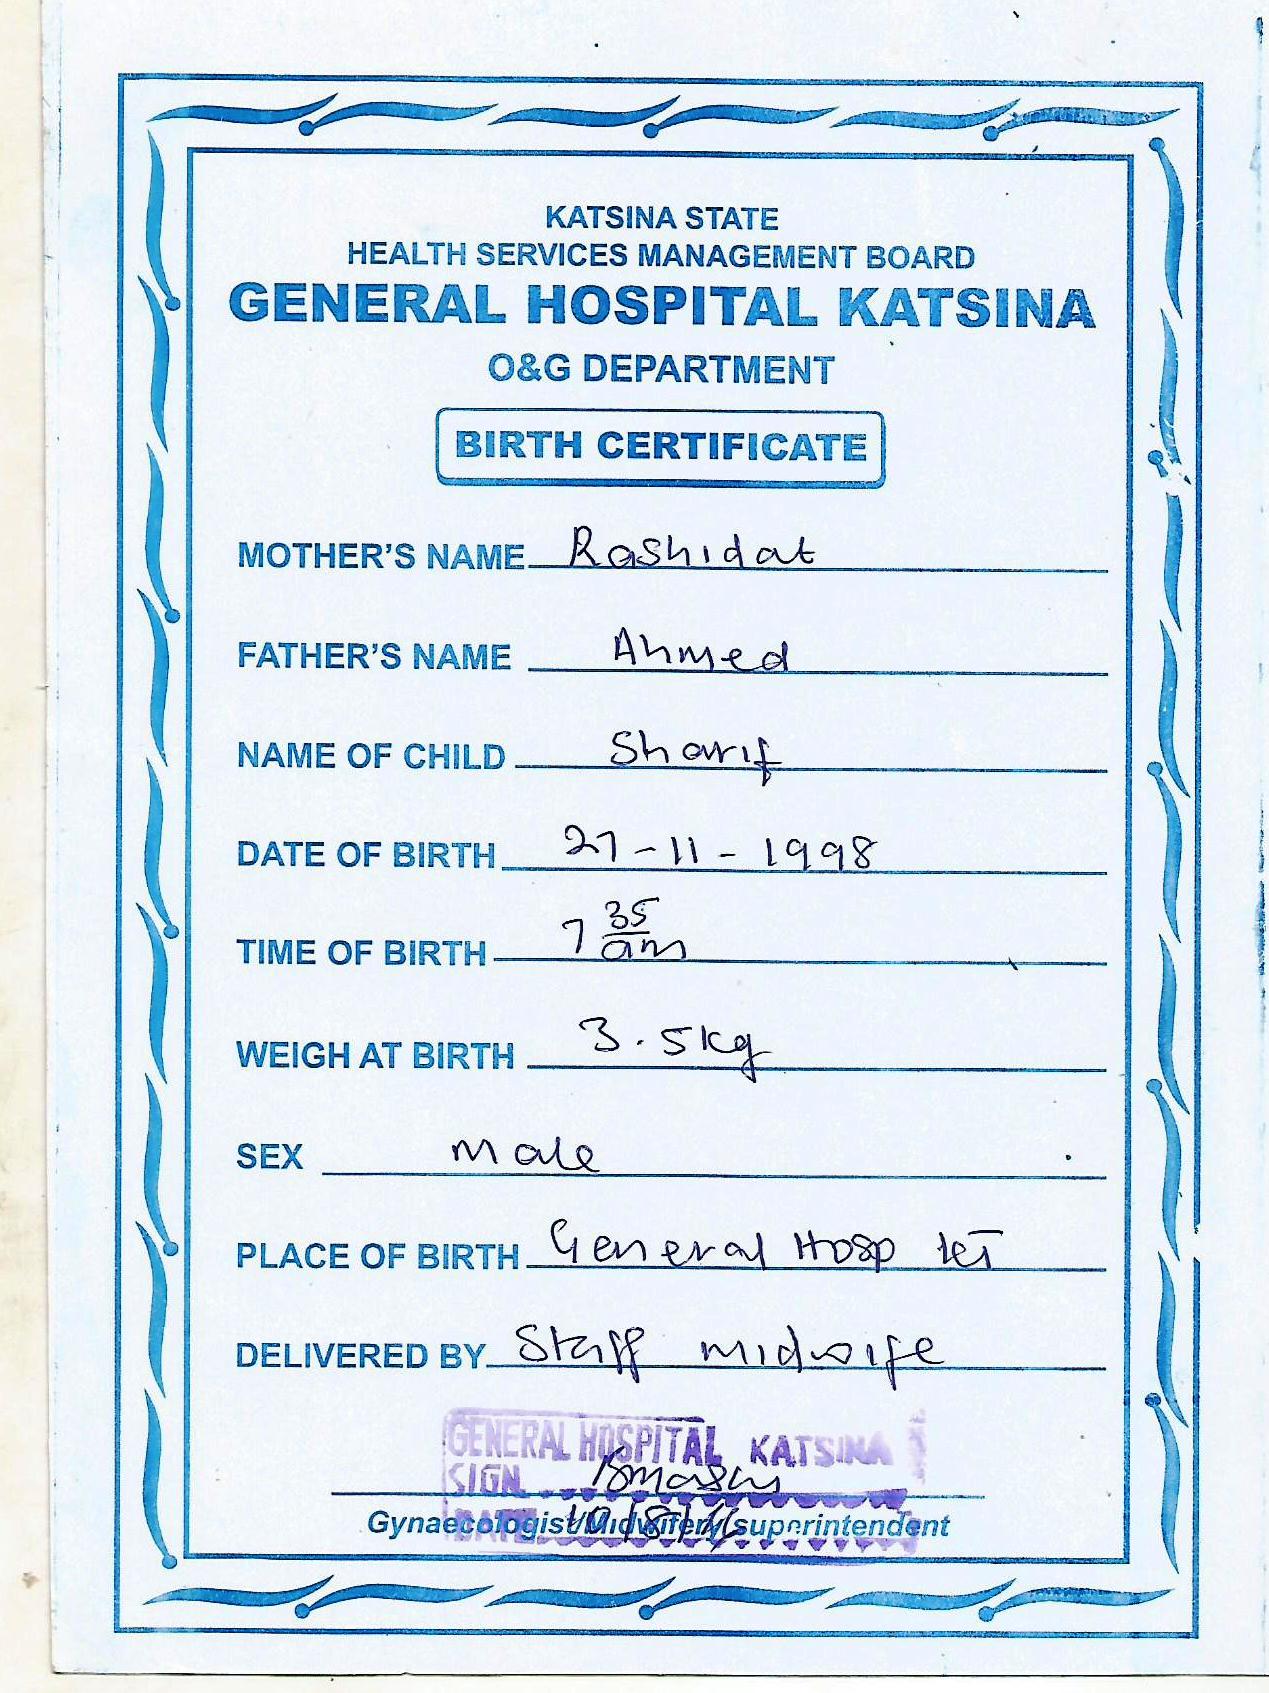 KATSINA STATE
HEALTH SERVICES MANAGEMENT BOARD
GENERAL HOSPITAL KATSINA
O&G DEPARTMENT
BIRTH CERTIFICATE
MOTHER'S NAME Rashidat
FATHER'S NAME Ahmed
NAME OF CHILD Sharif
DATE OF BIRTH 27-11-1998
TIME OF BIRTH 7 35 am
WEIGH AT BIRTH 3.5kg
SEX male
PLACE OF BIRTH General Hosp KT
DELIVERED BY Staff midwife
GENERAL HOSPITAL KATSINA
SIGN
DATE
Gynaecologist/Midwifery/superintendent